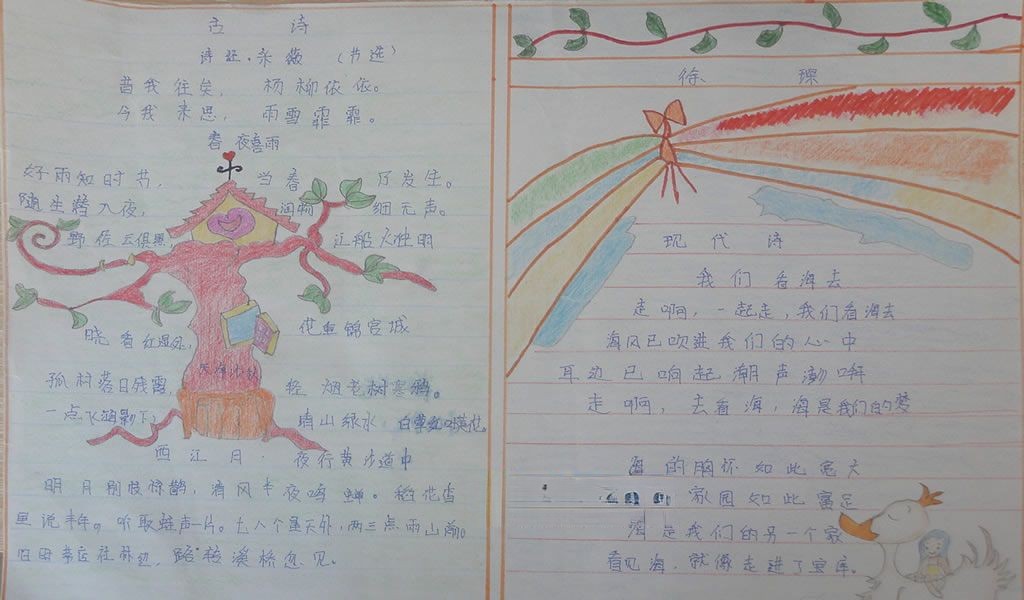 古诗
诗经·采薇（节选）
昔我往矣，杨柳依依。
今我来思，雨雪霏霏。
春夜喜雨
好雨知时节，当春乃发生。
随 潜入夜，润 细无声。
野径云俱黑，江船火独明
晓看红湿处，花重锦官城
孤村落日残霞，轻烟老树寒鸦。
一点飞鸿影下，青山绿水，白草红叶黄花。
西江月·夜行黄沙道中
明月别枝惊鹊，清风半夜鸣蝉。稻花香
里说丰年。听取蛙声一片。七八个星天外，两三点雨山前。
旧时茅店社林边，路转溪桥忽见。
徐
现代诗
我们看海去
走啊，一起走，我们看海去
海风已吹进我们的心中
耳边已响起潮声澎湃
走啊，去看海，海是我们的梦
的胸怀如此宽大
家园如此富足
海是我们的另一个家
看见海，就像走进了宝库。